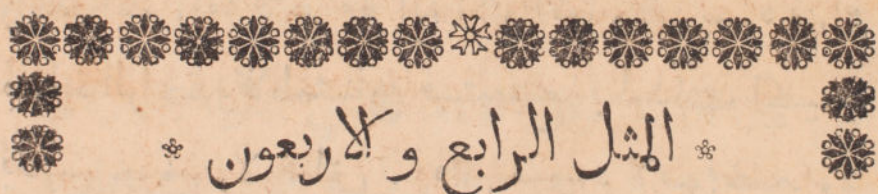 المثل الرابع و الاربعون